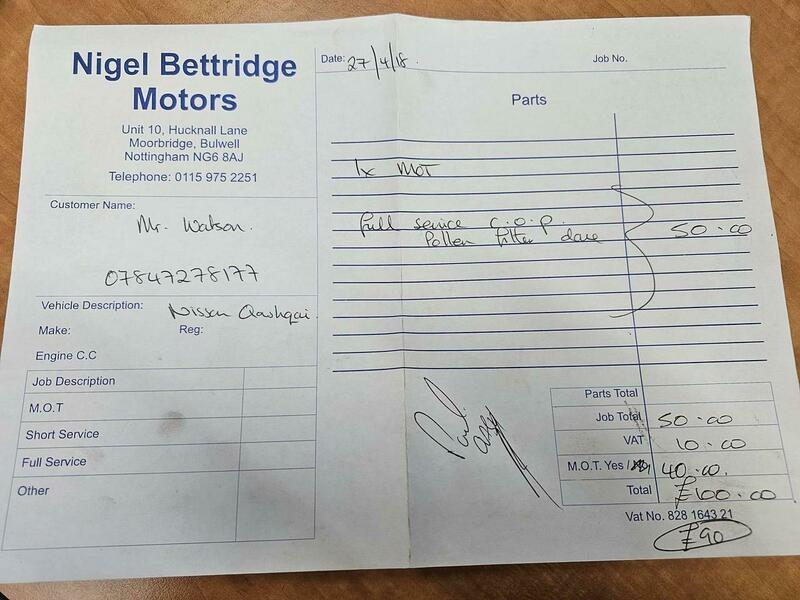 Nigel Bettridge
Motors
Unit 10, Hucknall Lane
Moorbridge, Bulwell
Nottingham NG6 8AJ
Telephone: 0115 975 2251
Customer Name:
Mr. Watson.
07847278177
Vehicle Description: Nissan Qashqai.
Make: Reg:
Engine C.C
Job Description
M.O.T
Short Service
Full Service
Other
Date: 27/4/18. Job No.
Parts
1x MOT
full service c.o.p.
Pollen filter done
50.00
Parts Total
Job Total 50.00
VAT 10.00
M.O.T. Yes / 40.00.
Total £100.00
Vat No. 828 1643 21
£90